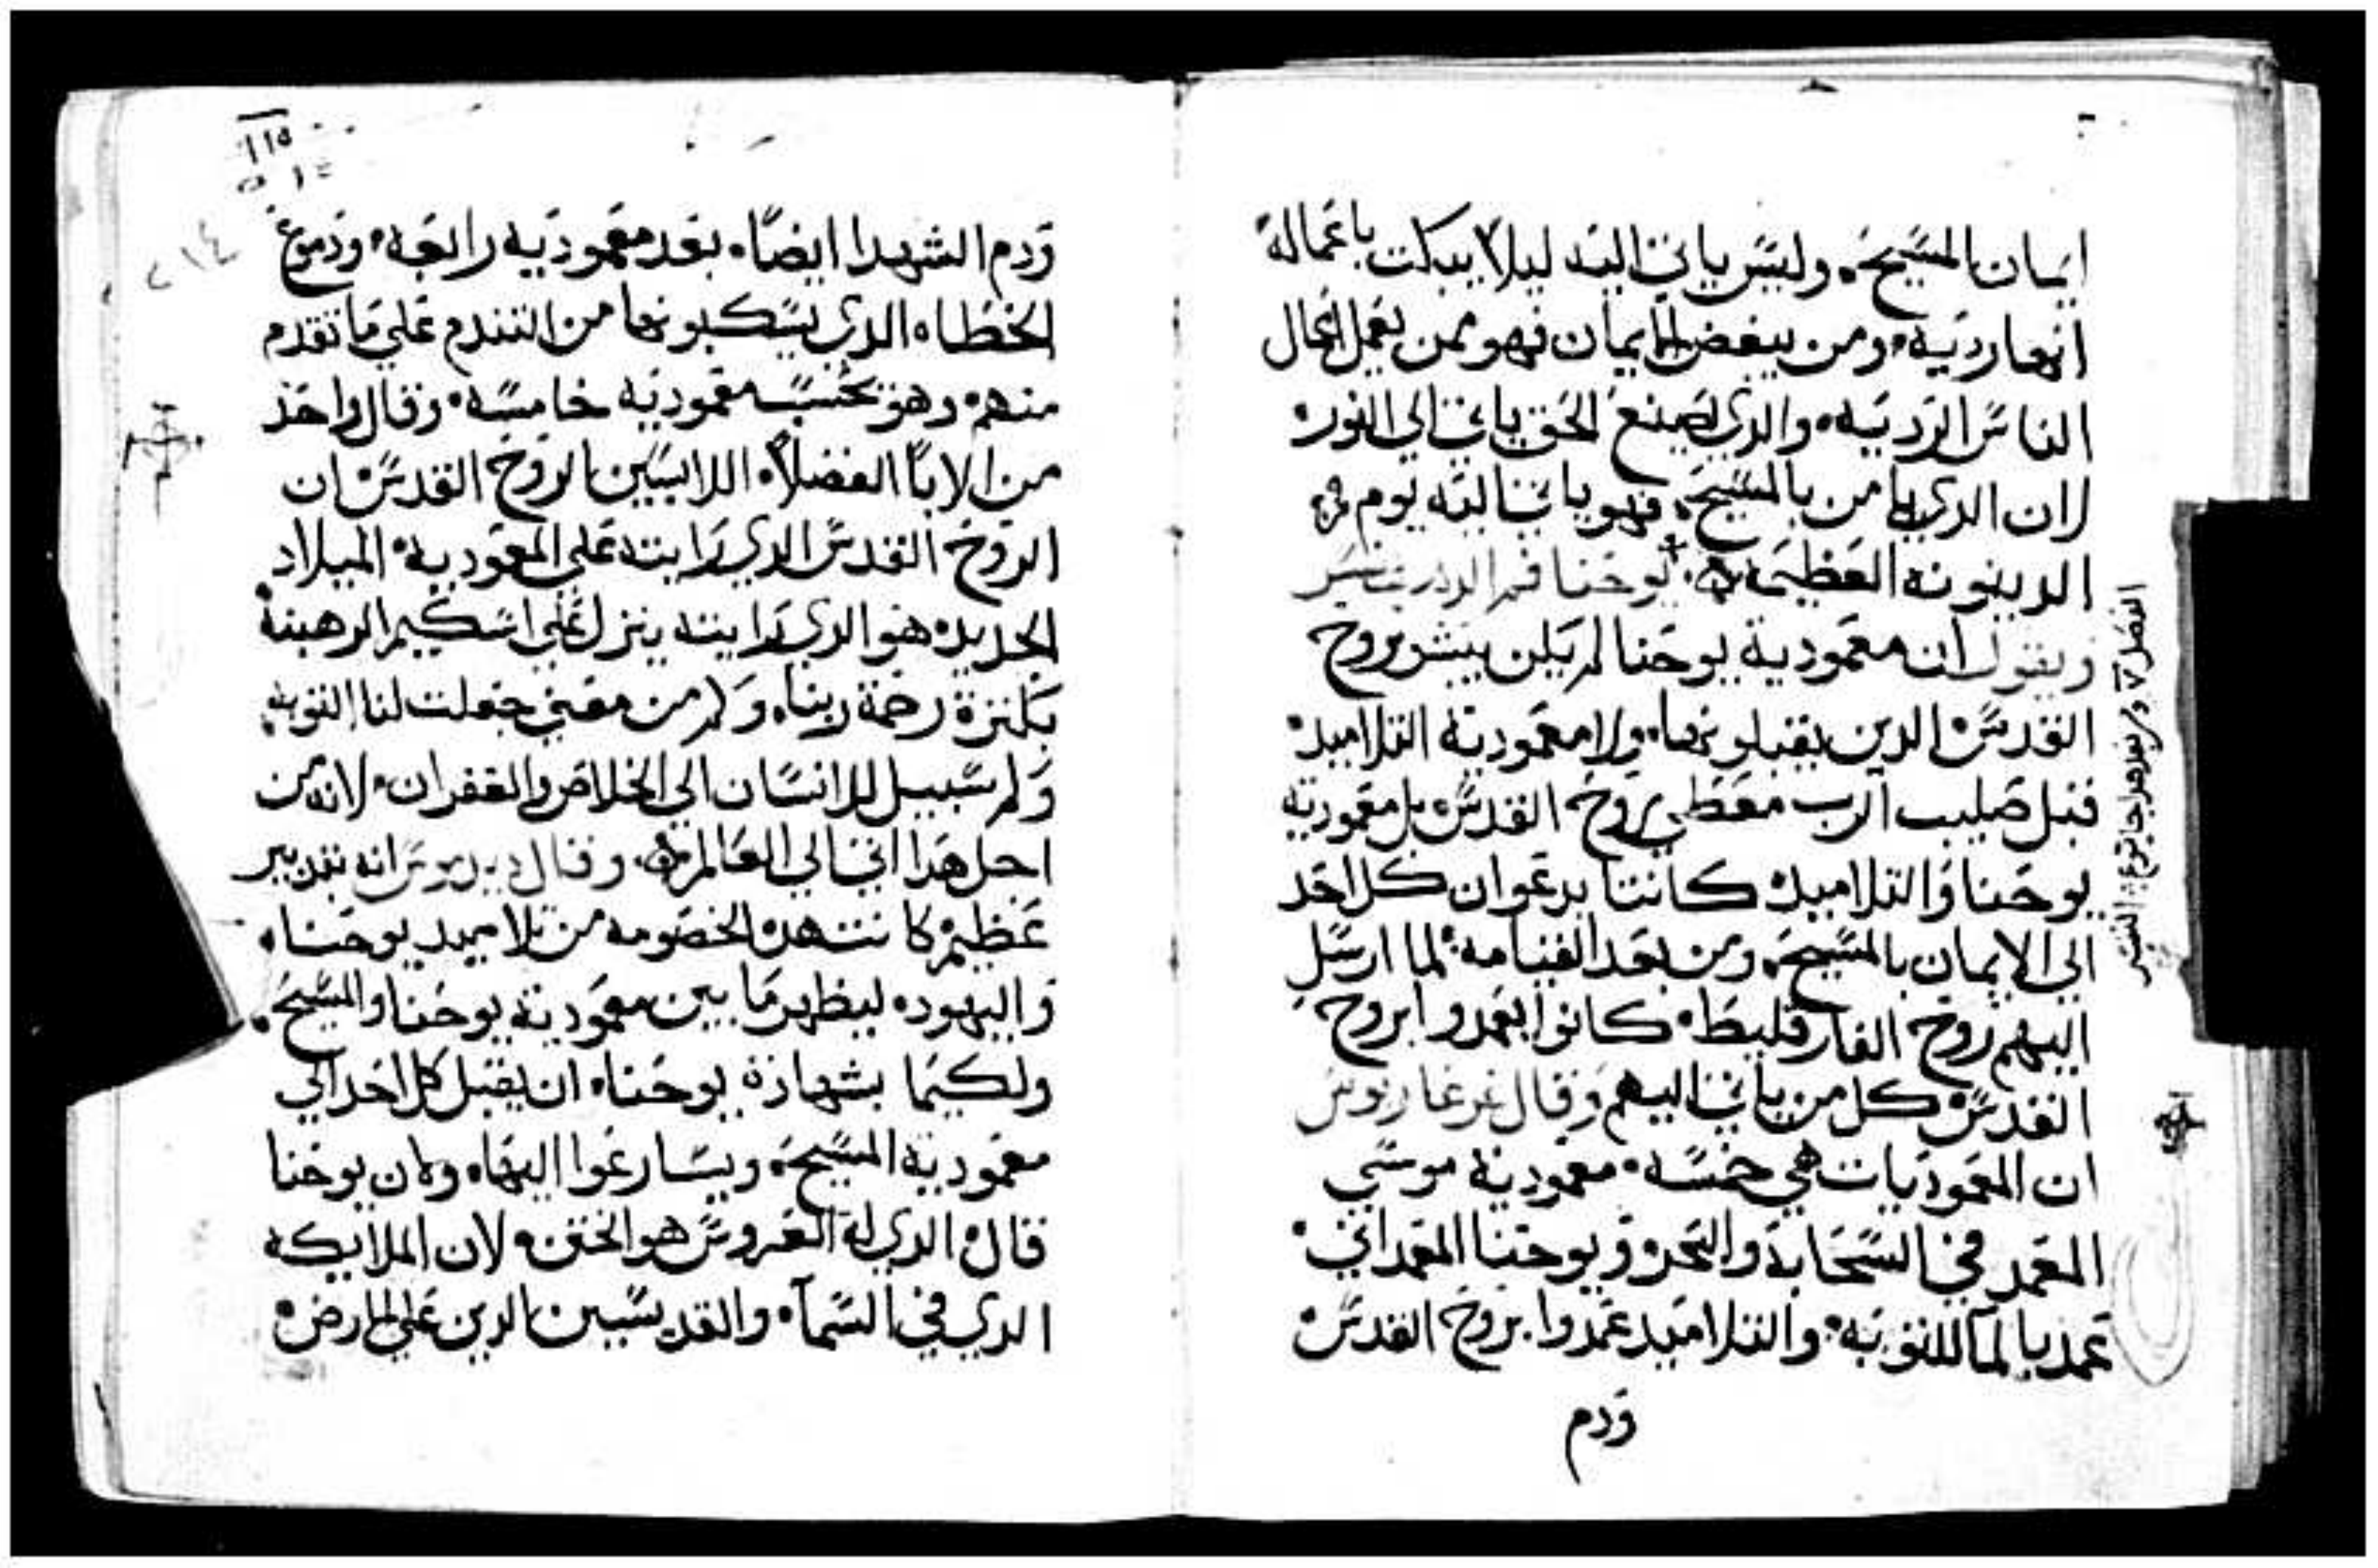 ايمان المسيح. وليس ياتي اليه ليلا يبكت باعماله
انها رديه. ومن يبغض الايمان فهو ممن يعمل اعمال
الناس الرديه. والدي يصنع الحق ياتي الي النور.
لان الدي يامن بالمسيح. فهو ياتي اليه يوم
الدينونه العظيمه يوحنا فم الدهب يفسر
ويقول ان معمودية يوحنا لم يكن ببشر بروح
القدس الدين يقبلونها. ولا معمودية التلاميد
قبل صليب الرب معطي بروح القدس بل معمودية
يوحنا والتلاميد كانتا يدعوان كل احد
الي الايمان بالمسيح. ومن بعد القيامه. لما ارسل
اليهم روح الفارقليط. كانوا يعمدوا بروح
القدس كل من ياتي اليهم وقال غرغاريوس
ان المعموديات هي خمسه. معمودية موسي
المعمد في السحابة والبحر ويوحنا المعمداني.
عمد بالمآ للتوبه. والتلاميد عمدوا بروح القدس
ودم
الفصل
١١٥
٢١٤
ودم الشهدا ايضا. بعد معموديه رابعه. ودموع
الخطاه الدي يسكبونها من التندم علي ما تقدم
منهم. وهو تحسب معموديه خامسه. وقال واحد
من الابآ الفضلا. اللابسين الروح القدس ان
الروح القدس الدي رايته علي المعموديه الميلاد
الجديد. هو الدي رايته ينزل علي اسكيم الرهبنة
بكثرة رحمة ربنا. وكم من معني جعلت لنا التوبه.
وكم سبيل للانسان الي الخلاص والغفران. لانه من
اجل هدا اتي الي العالم. وقال انه بتدبير
عظيم كانت هده الخصومه من تلاميد يوحنا.
واليهود. ليظهر ما بين معمودية يوحنا والمسيح.
ولكيما بشهادة يوحنا. ان يقبل كل احد الي
معمودية المسيح. ويسارعوا اليها. وكان يوحنا
قال الدي له العروس هو الختن. لان الملايكه
الدي في السمآ. والقديسيين الدين علي الارض